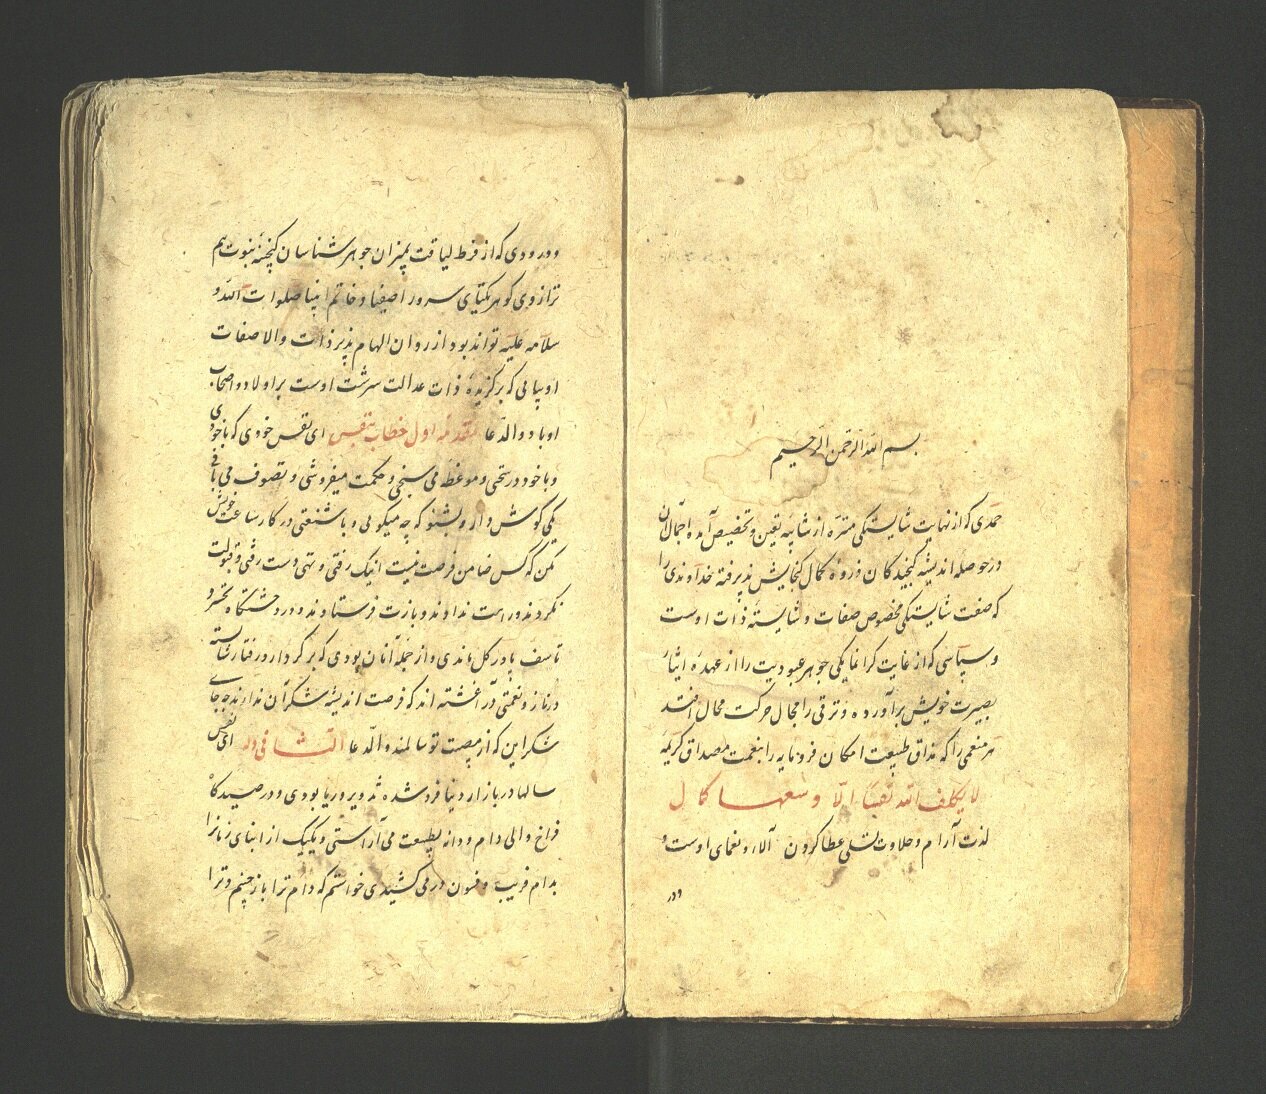 بسم الله الرحمن الرحیم
حمدی که از نهایت شایستگی منزه از شایبه تعین و تخصیص آمده اجمال آن
در حوصله اندیشه گنجیدگان فروه کمال گنجایش نپذیرفته خداوندی را
که صفت شایستگی مخصوص صفات و شایسته ذات اوست
و سپاسی که از غایت گرانمایگی جوهر عبودیت را از عهده ایثار
بصیرت خویش برآورده و ترقی را مجال حرکت محال افتد
هر منعمی را که مذاق طبیعت امکان فرومایه را بنعمت مصداق کریمه
لا یکلف الله نفسا الا وسعها کمال
لذت آرام و حلاوت تسلی عطا کردن آلاء و نعمای اوست و
درو
و درودی که از فرط لیاقت بمیزان جوهرشناسان گنجینه نبوت هم
ترازوی گوهر یکتای سرور اصفیا و خاتم انبیا صلوات الله و
سلامه علیه تواند بود از روان الهام پذیر ذات والا صفات
اوبیابی که برگزیده ذات عدالت سرشت اوست بر اولاد و اصحاب
او باد والدعا مقدمه اول خطاب بنفس ای نفس خودی که باخودی
و باخود در سخنی و موعظه می سنجی و حکمت میفروشی و تصوف می بافی
یکی گوش دار و بشنو که چه میگویی و باشنعتی در کار ساعت خویش
مکن که کس ضامن فرصت نیست اینک رفتی و تهی دست رفتی و قبولت
نکردند و راهت ندادند و بازت فرستادند و در دهشتگاه تحسر و
تاسف پا در گل ماندی و از جمله آنان بودمی که بر کردار و رفتار شایسته
در ناز و نعمتی آغشته اند که فرصت اندیشه شکر آن ندارند چه جای
شکر این که از مصیبت تو سالمند والدعا الثانی وله ای نفس
سالها در بازار دنیا فرد شده تدویر و ریا بودی و در صیدگاه
فراخ والی دام و دانه طبیعت می آراستی و یکیک از ابنای زمانرا
بدام فریب و فسون در می کشیدی خواستم که دام ترا باز چینم و ترا